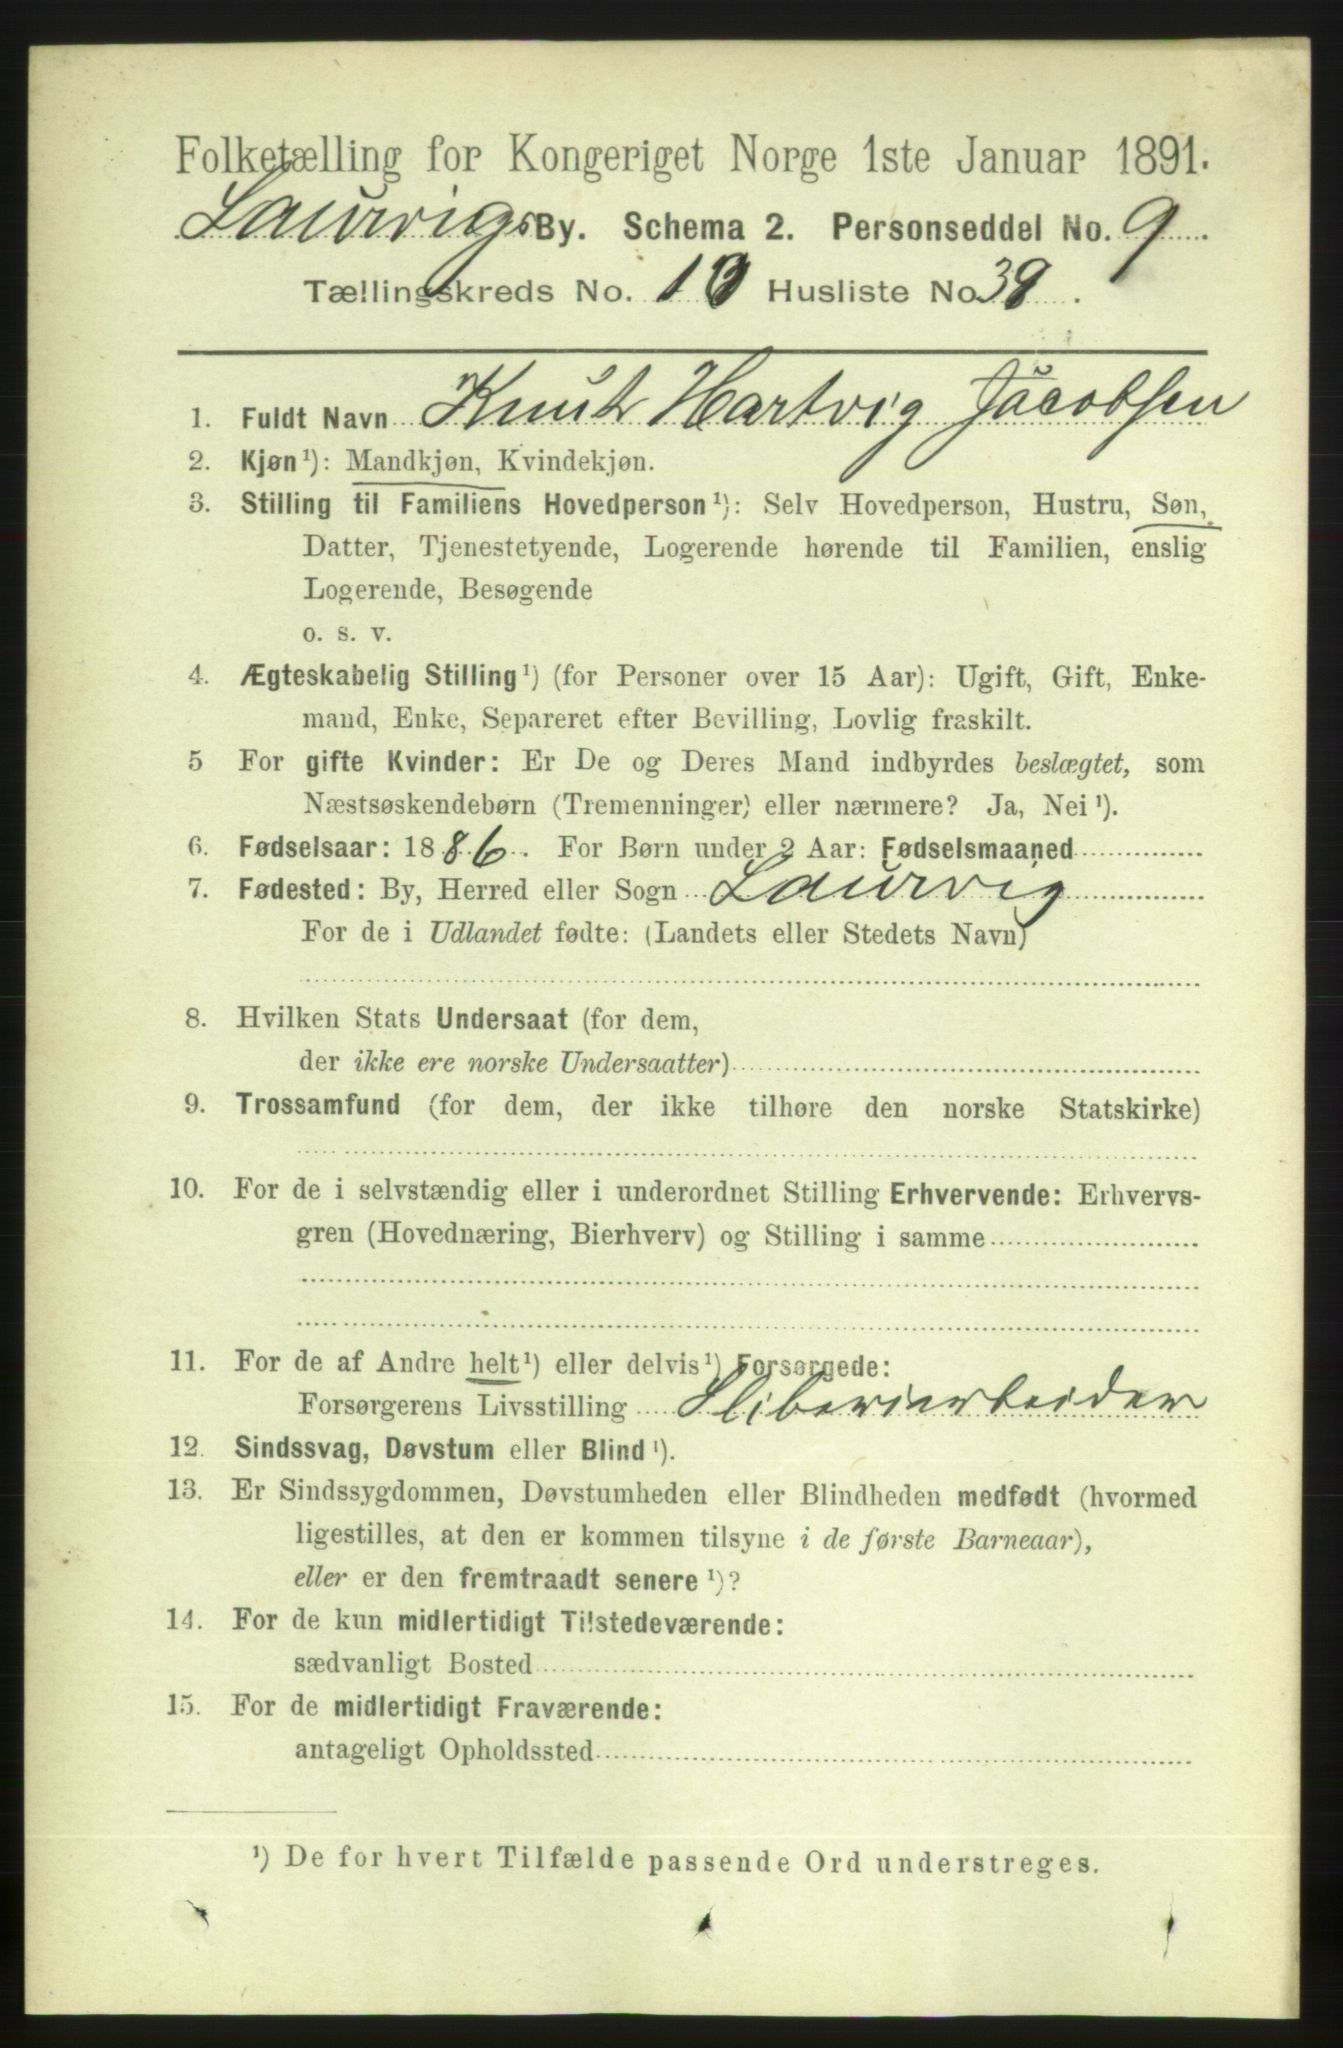 Folketælling for Kongeriget Norge 1ste Januar 1891.
Laurvigs By. Schema 2. Personseddel No. 9
Tællingskreds No. 10 Husliste No 39.
1. Fuldt Navn Knut Hartvig Jacobsen
2. Kjøn ¹): Mandkjøn, Kvindekjøn.
3. Stilling til Familiens Hovedperson ¹): Selv Hovedperson, Hustru, Søn,
Datter, Tjenestetyende, Logerende hørende til Familien, enslig
Logerende, Besøgende
o. s. v.
4. Ægteskabelig Stilling ¹) (for Personer over 15 Aar): Ugift, Gift, Enke-
mand, Enke, Separeret efter Bevilling, Lovlig fraskilt.
5 For gifte Kvinder: Er De og Deres Mand indbyrdes beslægtet, som
Næstsøskendebørn (Tremenninger) eller nærmere? Ja, Nei ¹).
6. Fødselsaar: 1886. For Børn under 2 Aar: Fødselsmaaned
7. Fødested: By, Herred eller Sogn Laurvig
For de i Udlandet fødte: (Landets eller Stedets Navn)
8. Hvilken Stats Undersaat (for dem,
der ikke ere norske Undersaatter)
9. Trossamfund (for dem, der ikke tilhøre den norske Statskirke)
10. For de i selvstændig eller i underordnet Stilling Erhvervende: Erhvervs-
gren (Hovednæring, Bierhverv) og Stilling i samme
11. For de af Andre helt ¹) eller delvis ¹) Forsørgede:
Forsørgerens Livsstilling Sliberiarbeider
12. Sindssvag, Døvstum eller Blind ¹).
13. Er Sindssygdommen, Døvstumheden eller Blindheden medfødt (hvormed
ligestilles, at den er kommen tilsyne i de første Barneaar),
eller er den fremtraadt senere ¹)?
14. For de kun midlertidigt Tilstedeværende:
sædvanligt Bosted
15. For de midlertidigt Fraværende:
antageligt Opholdssted
¹) De for hvert Tilfælde passende Ord understreges.